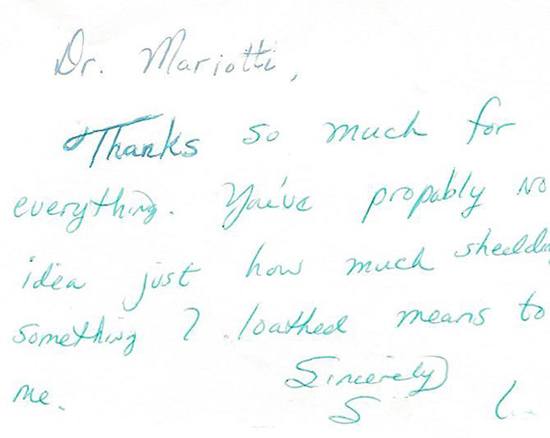 Dr. Mariotti,
Thanks so much for
everything. You've propably no
idea just how much
something I loathed means to
me. Sincerely
S